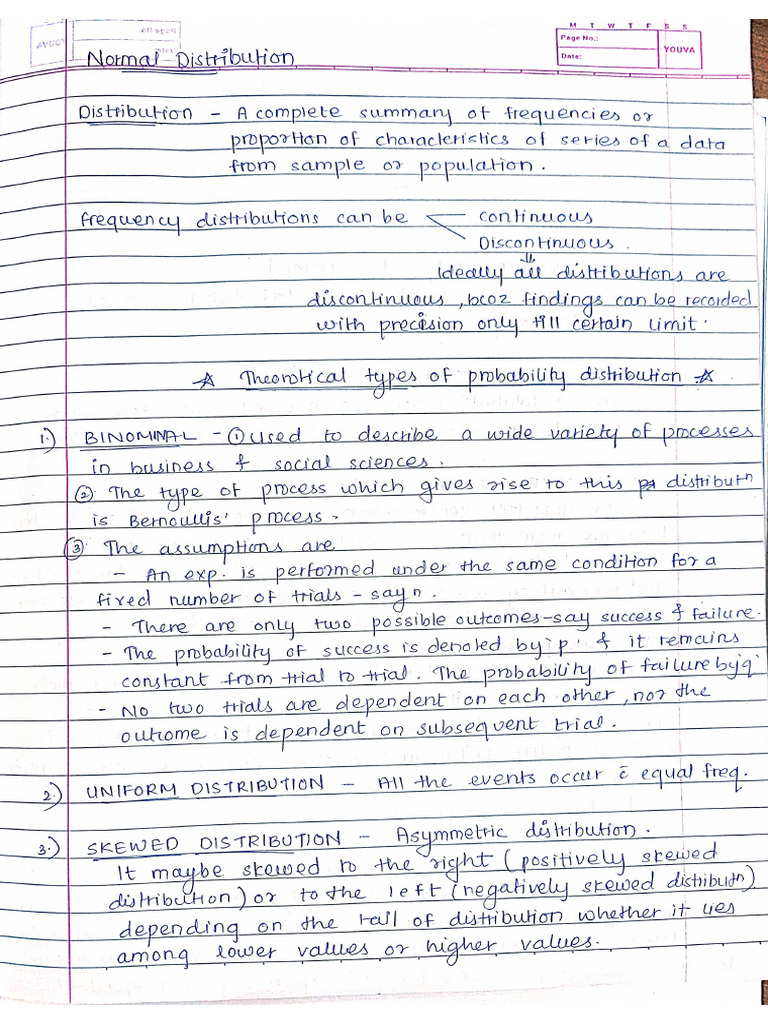 M T W T F S S
Page No.:
YOUVA
Date:
Normal Distribution
Distribution - A complete summary of frequencies or
proportion of characteristics of series of a data
from sample or population.
frequency distributions can be continuous
Discontinuous.
⇓
Ideally all distributions are
discontinuous, bcoz findings can be recorded
with precision only till certain limit.
☆ Theorotical types of probability distribution ☆
1.) BINOMINAL - ① used to describe a wide variety of processes
in business & social sciences.
② The type of process which gives rise to this distributn
is Bernoullis' process.
③ The assumptions are
- An exp. is performed under the same condition for a
fixed number of trials - say n.
- There are only two possible outcomes - say success & failure.
- The probability of success is denoted by 'p' & it remains
constant from trial to trial. The probability of failure by 'q'
- No two trials are dependent on each other, nor the
outcome is dependent on subsequent trial.
2.) UNIFORM DISTRIBUTION - All the events occur c̄ equal freq.
3.) SKEWED DISTRIBUTION - Asymmetric distribution.
It maybe skewed to the right (positively skewed
distribution) or to the left (negatively skewed distributn)
depending on the tail of distribution whether it lies
among lower values or higher values.